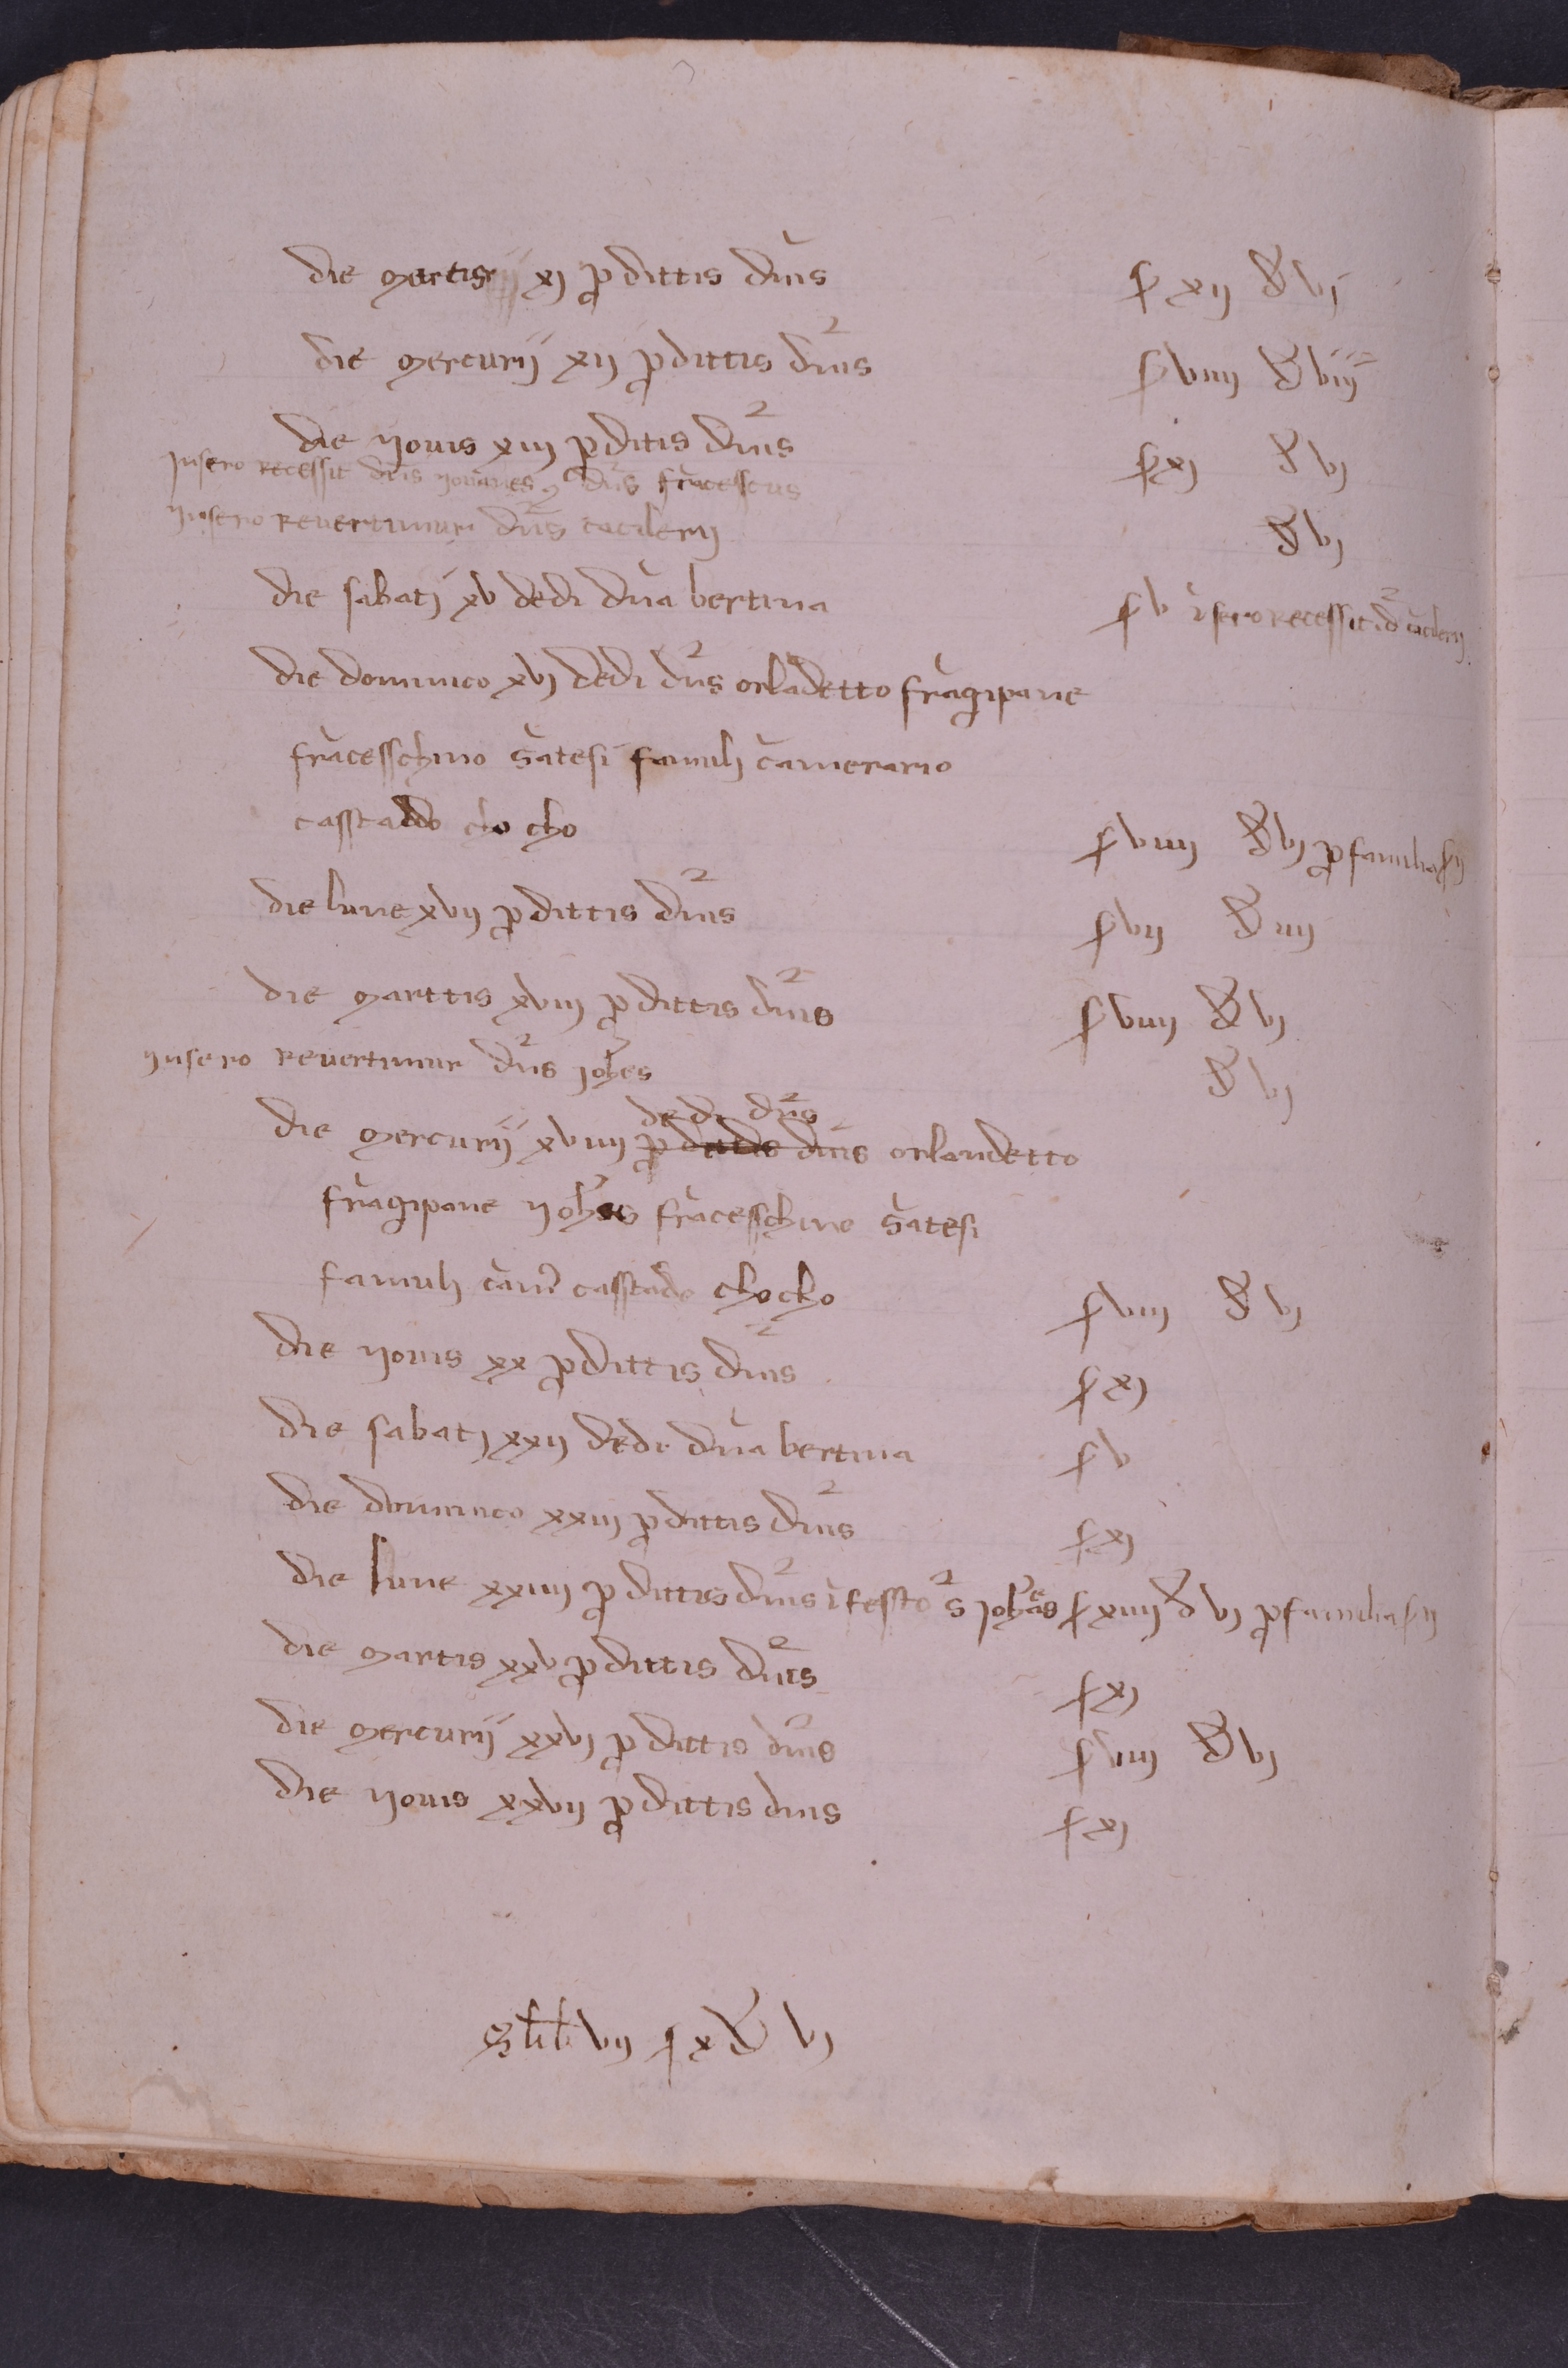 die martis xj p dittis dnis ſ xij d vj
die mercurij xij p dittis dnis ſ viiij d viij
die yovis xiij p ditis dnis ſ xj d vj
insero recessit dns yohanes dns fracesscus
yinsero revertimur dns cacilerij d vj
die sabatj xv dedi dna bertina ſ v i sero recessit d cacilerij
die dominico xvj dedi dns orladetto fragipane
fracesschino satesi famuli camerario
casstaldo cho cho ſ viiij d vj p familia ſ ij
die lune xvij p dittis dnis ſ vij d iiij
die marttis xviij p dittis dnis ſ viiij d vj
yinsero revertimur dns johes d vj
dedi dns
die mercurij xviiij p dittis dnis orlandetto
fragipane yohes fracesschino satesi
famuli cam casstado chocho ſ viiij d vj
die yovis xx p dittis dnis ſ xj
die sabatj xxij dedi dna bertina ſ v
die dominico xxiij p dittis dnis ſ xj
die lune xxiiij p dittis dnis i fessto s johes ſ xiiij d vj p familia ſ ij
die martis xxv p dittis dnis ſ xj
die mercurij xxvj p dittis dnis ſ viiij d vj
die yovis xxvij p dittis dnis ſ xj
S lib vij ſ x d vj